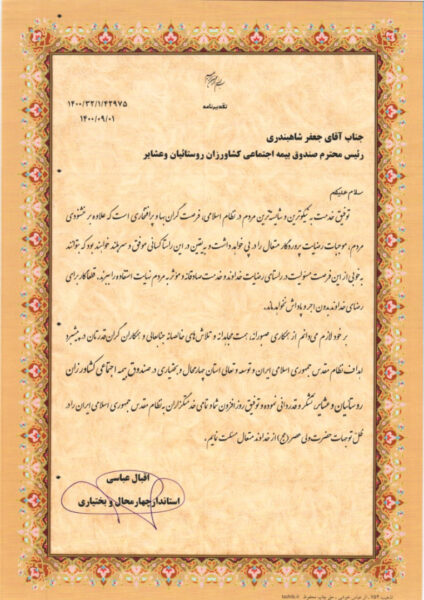 تقدیرنامه
۱۴۰۰/۳۲/۱/۴۲۹۷۵
۱۴۰۰/۰۹/۰۱
جناب آقای جعفر شاهبندری
رئیس محترم صندوق بیمه اجتماعی کشاورزان روستائیان وعشایر
سلام علیکم
توفیق خدمت به نیکوترین و شایسته‌ترین مردم در نظام اسلامی، فرصت گران بها و پر افتخاری است که علاوه بر خشنودی
مردم، موجبات رضایت پروردگار متعال را در پی خواهد داشت و به یقین در این راستا کسانی موفق و سربلند خواهند بود که بتوانند
به خوبی از این فرصت مسئولیت در راستای رضایت خداوند و خدمت صادقانه و مؤثر به مردم نهایت استفاده را ببرند. قطعاً کار برای
رضای خداوند بدون اجر و پاداش نخواهد ماند.
بر خود لازم می‌دانم از همکاری صبورانه، همت مجدانه و تلاش‌های خالصانه جنابعالی و همکاران گران قدرتان در پیشبرد
اهداف نظام مقدس جمهوری اسلامی ایران و توسعه و تعالی استان چهارمحال و بختیاری در صندوق بیمه اجتماعی کشاورزان
روستائیان و عشایر تشکر و قدردانی نموده و توفیق روزافزون شما و تمامی خدمتگزاران به نظام مقدس جمهوری اسلامی ایران را در
ظل توجهات حضرت ولی عصر (عج) از خداوند متعال مسئلت نمایم.
اقبال عباسی
استاندار چهارمحال و بختیاری